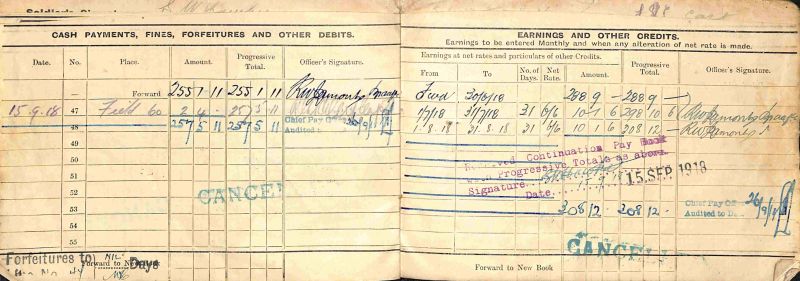 Soldier's
CASH PAYMENTS, FINES, FORFEITURES AND OTHER DEBITS.
Date. No. Place. Amount. Progressive Total. Officer's Signature.
Forward 255 1 11 255 1 11
15-9-18 47 Field 60 2 4 - 257 5 11
48 257 5 11 257 5 11 Chief Pay
Audited
49
50
51
52
53
54
55
CANCE
Forfeitures to NIL
Forward to New Book
Days
EARNINGS AND OTHER CREDITS.
Earnings to be entered Monthly and when any alteration of net rate is made.
Earnings at net rates and particulars of other Credits.
From To No. of Days. Net Rate. Amount. Progressive Total. Officer's Signature.
Fwd 30/6/18 288 9 - 288 9 -
1/7/18 31/7/18 31 6/6 10 1 6 298 10 6
1.8.18 31.8.18 31 6/6 10 1 6 308 12 -
Received Continuation Pay Book
with Progressive Totals as above.
Signature
Date 15 SEP 1918
308 12 - 308 12 - Chief Pay Off
Audited to
CANCEL
Forward to New Book